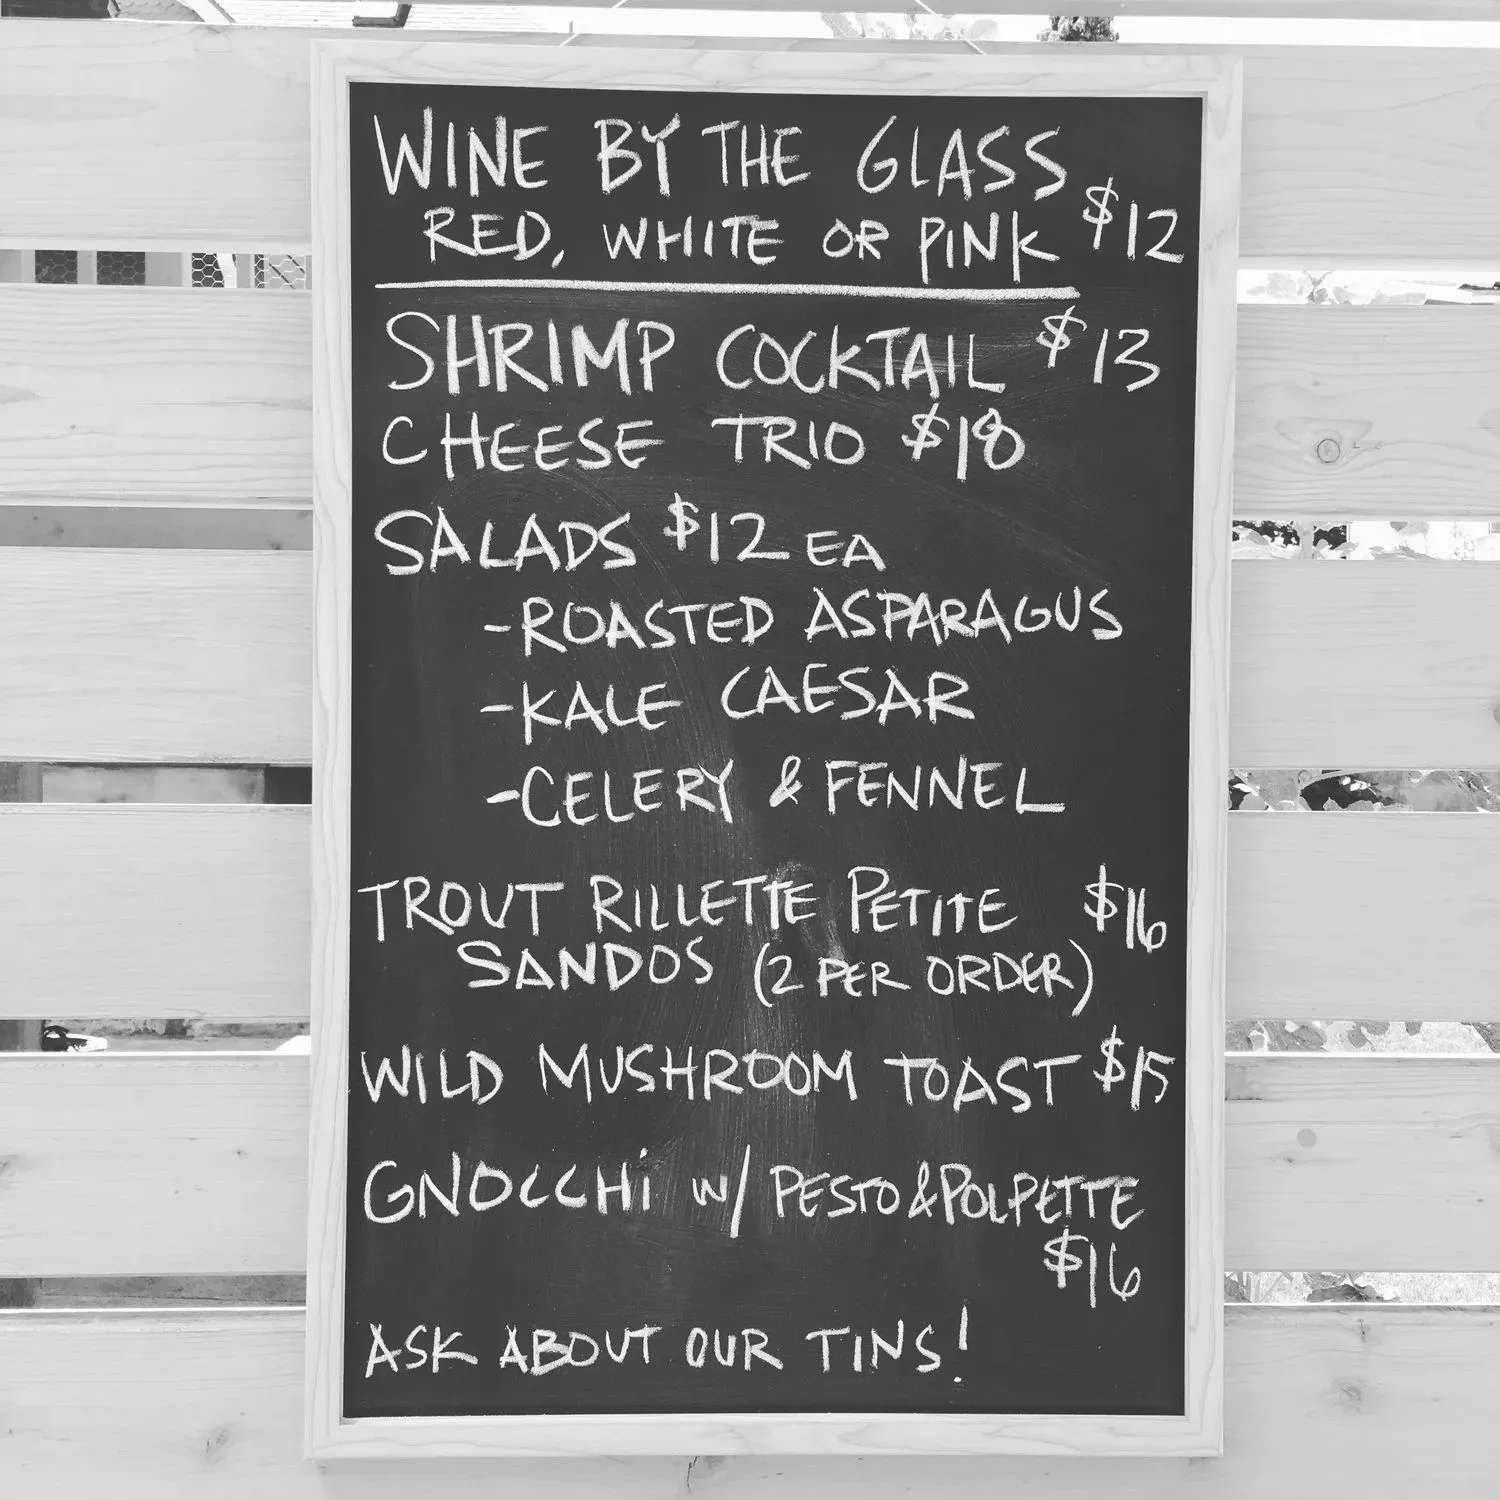 WINE BY THE GLASS
RED, WHITE OR PINK $12
SHRIMP COCKTAIL $13
CHEESE TRIO $18
SALADS $12 EA
-ROASTED ASPARAGUS
-KALE CAESAR
-CELERY & FENNEL
TROUT RILLETTE PETITE $16
SANDOS (2 PER ORDER)
WILD MUSHROOM TOAST $15
GNOCCHi W/ PESTO & POLPETTE
$16
ASK ABOUT OUR TINS!